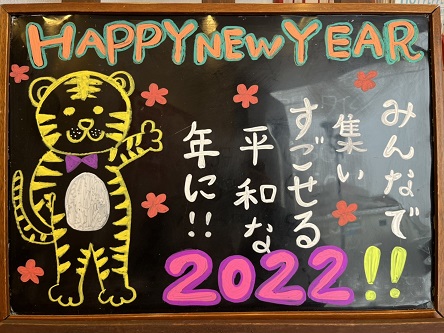 HAPPY NEW YEAR
みんなで
集い
すごせる
平和な
年に!!
2022!!